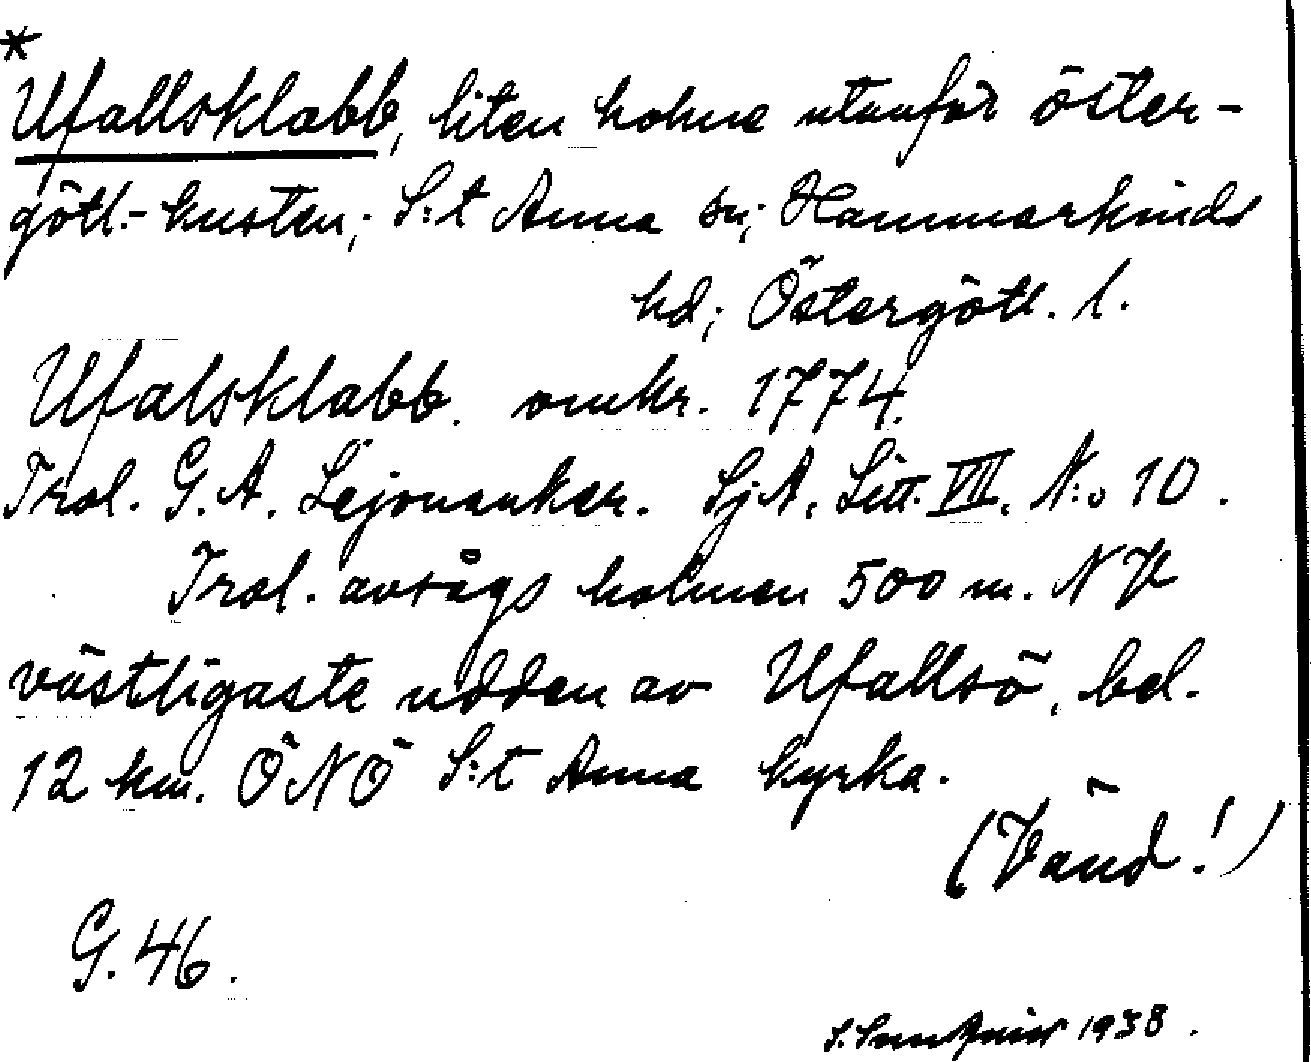 *
Ufallsklabb, liten holme utanför öster-
götl.-kusten; S:t Anna sn; Hammarkinds
hd; Östergötl. l.
Ufalsklabb. omkr. 1774.
Trol. G. A. Lejonanker. SjA, Litt. VII. N:o 10.
Trol. avsågs holmen 500 m. NV
västligaste udden av Ufallsö, bel.
12 km. ÖNÖ S:t Anna kyrka.
(Vänd!)
G. 46.
S. 1938.